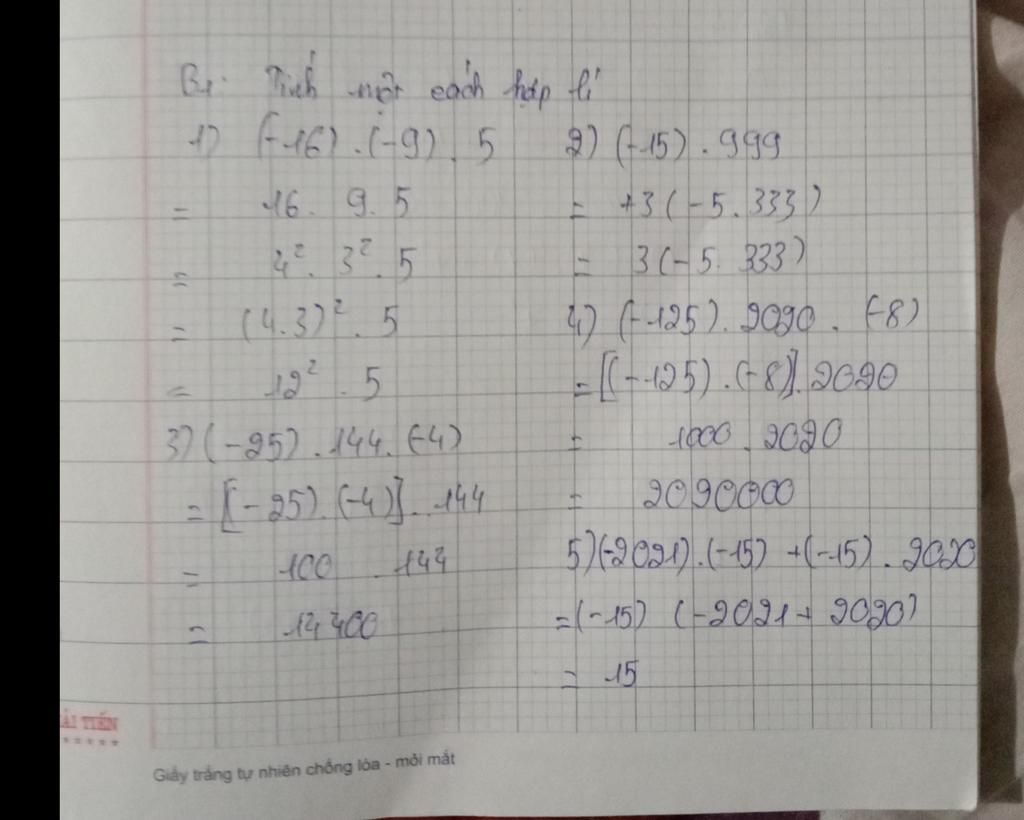 B1: Tính một cách hợp lí
1) (-16) . (-9) . 5
= 16 . 9 . 5
= 4² . 3² . 5
= (4.3)² . 5
= 12² . 5
3) (-25) . 144 . (-4)
= [-25) . (-4)] . 144
= 100 . 144
= 14400
2) (-15) . 999
= +3 (-5 . 333)
= 3 (-5 . 333)
4) (-125) . 2020 . (-8)
= [(-125) . (-8)] . 2020
= 1000 . 2020
= 2020000
5) (-2021) . (-15) + (-15) . 2020
= (-15) (-2021 + 2020)
= 15
ẢI TIẾN
Giấy trắng tự nhiên chống lóa - mỏi mắt